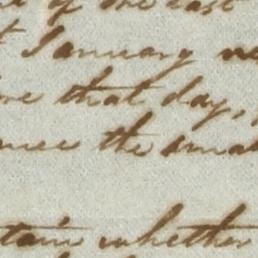 of the last
January ne
that day,
the smal
tain whether